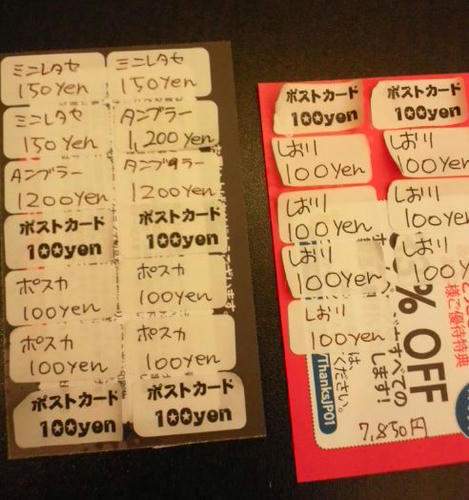 ミニレタセ
150yen
ミニレタセ
150yen
ミニレタセ
150yen
タンブラー
1,200yen
タンブラー
1200yen
タンブラー
1200yen
ポストカード
100yen
ポストカード
100yen
ポスカ
100yen
ポスカ
100yen
ポスカ
100yen
ポスカ
100yen
ポストカード
100yen
ポストカード
100yen
ポストカード
100yen
ポストカード
100yen
しおり
100yen
しおり
100yen
しおり
100yen
しおり
100yen
しおり
100yen
しおり
100y
しおり
100yen
% OFF
様ご優待特典
すべての
します!
は、
ください。
ThanksJP01
7,850円